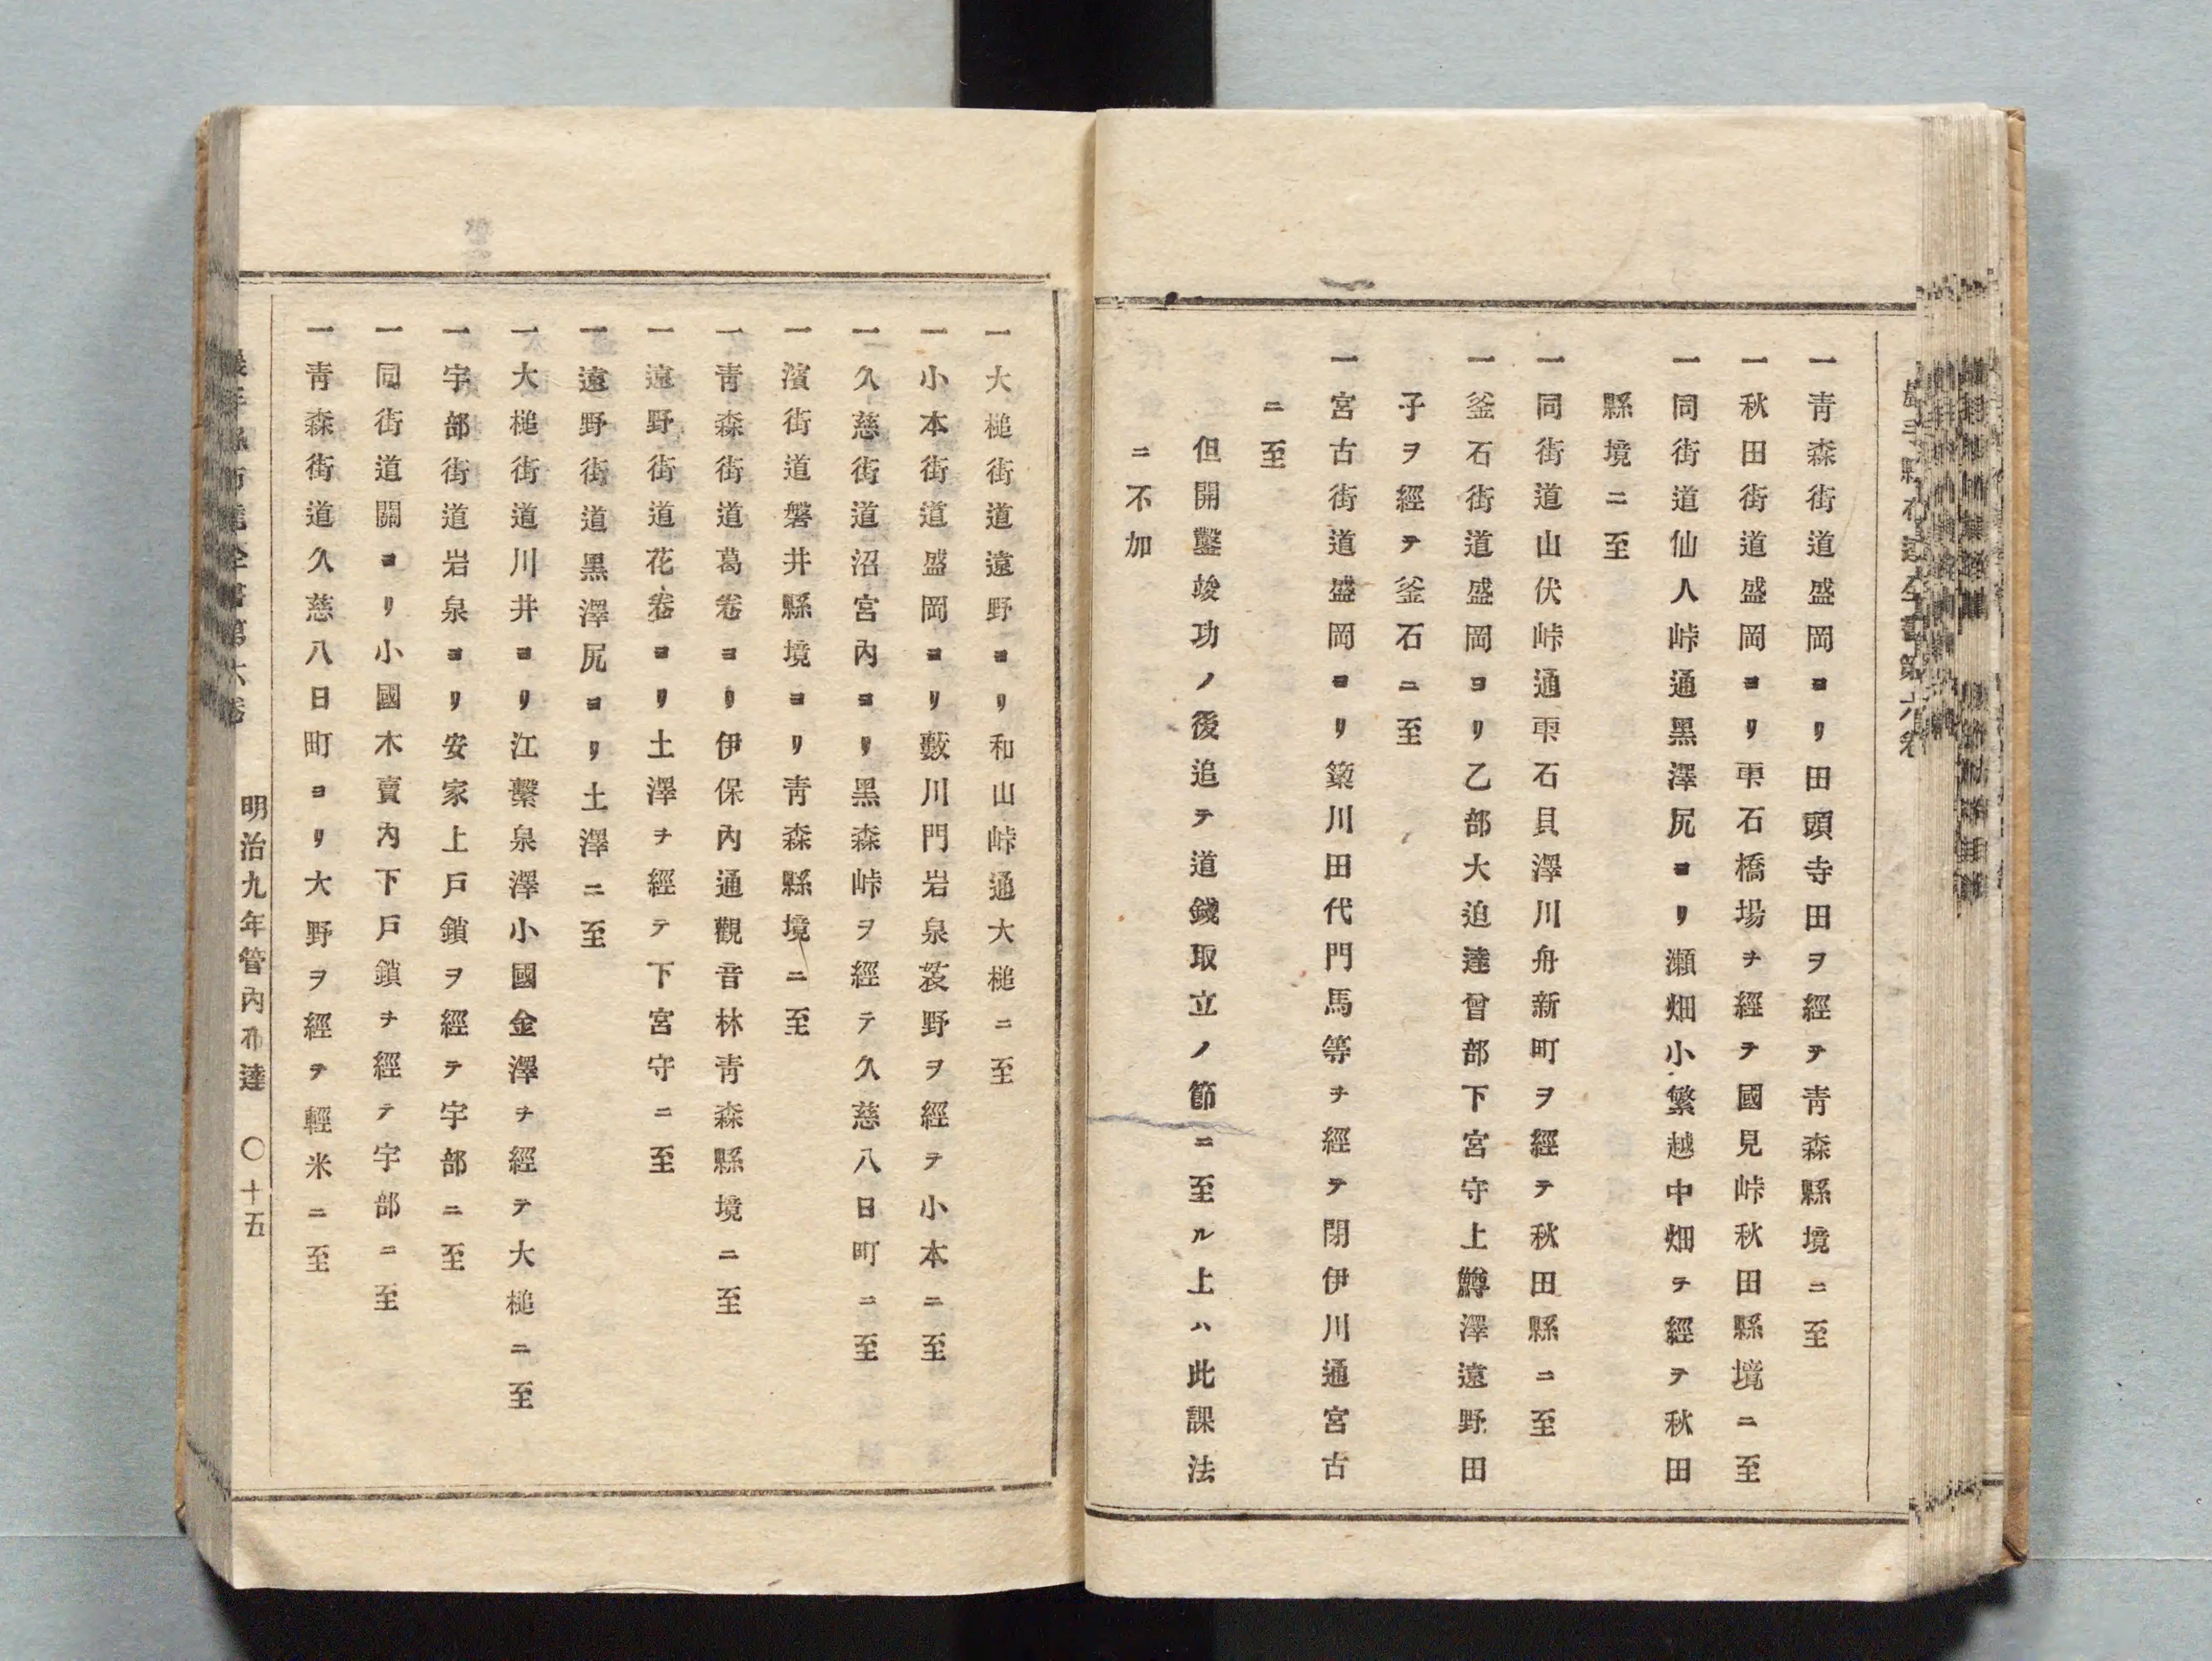 一青森街道盛岡ヨリ田頭寺田ヲ經テ青森縣境ニ至
一秋田街道盛岡ヨリ雫石橋場ヲ經テ國見峠秋田縣境ニ至
一同街道仙人峠通黑澤尻ヨリ瀬畑小繁越中畑ヲ經テ秋田
縣境ニ至
一同街道山伏峠通雫石貝澤川舟新町ヲ經テ秋田縣ニ至
一釜石街道盛岡ヨリ乙部大迫達曾部下宮守上鱒澤遠野田
子ヲ經テ釜石ニ至
一宮古街道盛岡ヨリ簗川田代門馬等ヲ經テ閉伊川通宮古
ニ至
但開鑿竣功ノ後追テ道錢取立ノ節ニ至ル上ハ此課法
ニ不加
一大槌街道遠野ヨリ和山峠通大槌ニ至
一小本街道盛岡ヨリ藪川門岩泉袰野ヲ經テ小本ニ至
一久慈街道沼宮內ヨリ黑森峠ヲ經テ久慈八日町ニ至
一濱街道磐井縣境ヨリ青森縣境ニ至
一青森街道葛卷ヨリ伊保內通觀音林青森縣境ニ至
一遠野街道花卷ヨリ土澤ヲ經テ下宮守ニ至
一遠野街道黑澤尻ヨリ土澤ニ至
一大槌街道川井ヨリ江繫泉澤小國金澤ヲ經テ大槌ニ至
一宇部街道岩泉ヨリ安家上戶鎖ヲ經テ宇部ニ至
一同街道關ヨリ小國木賣內下戶鎖ヲ經テ宇部ニ至
一青森街道久慈八日町ヨリ大野ヲ經テ輕米ニ至
明治九年管內布達 〇十五